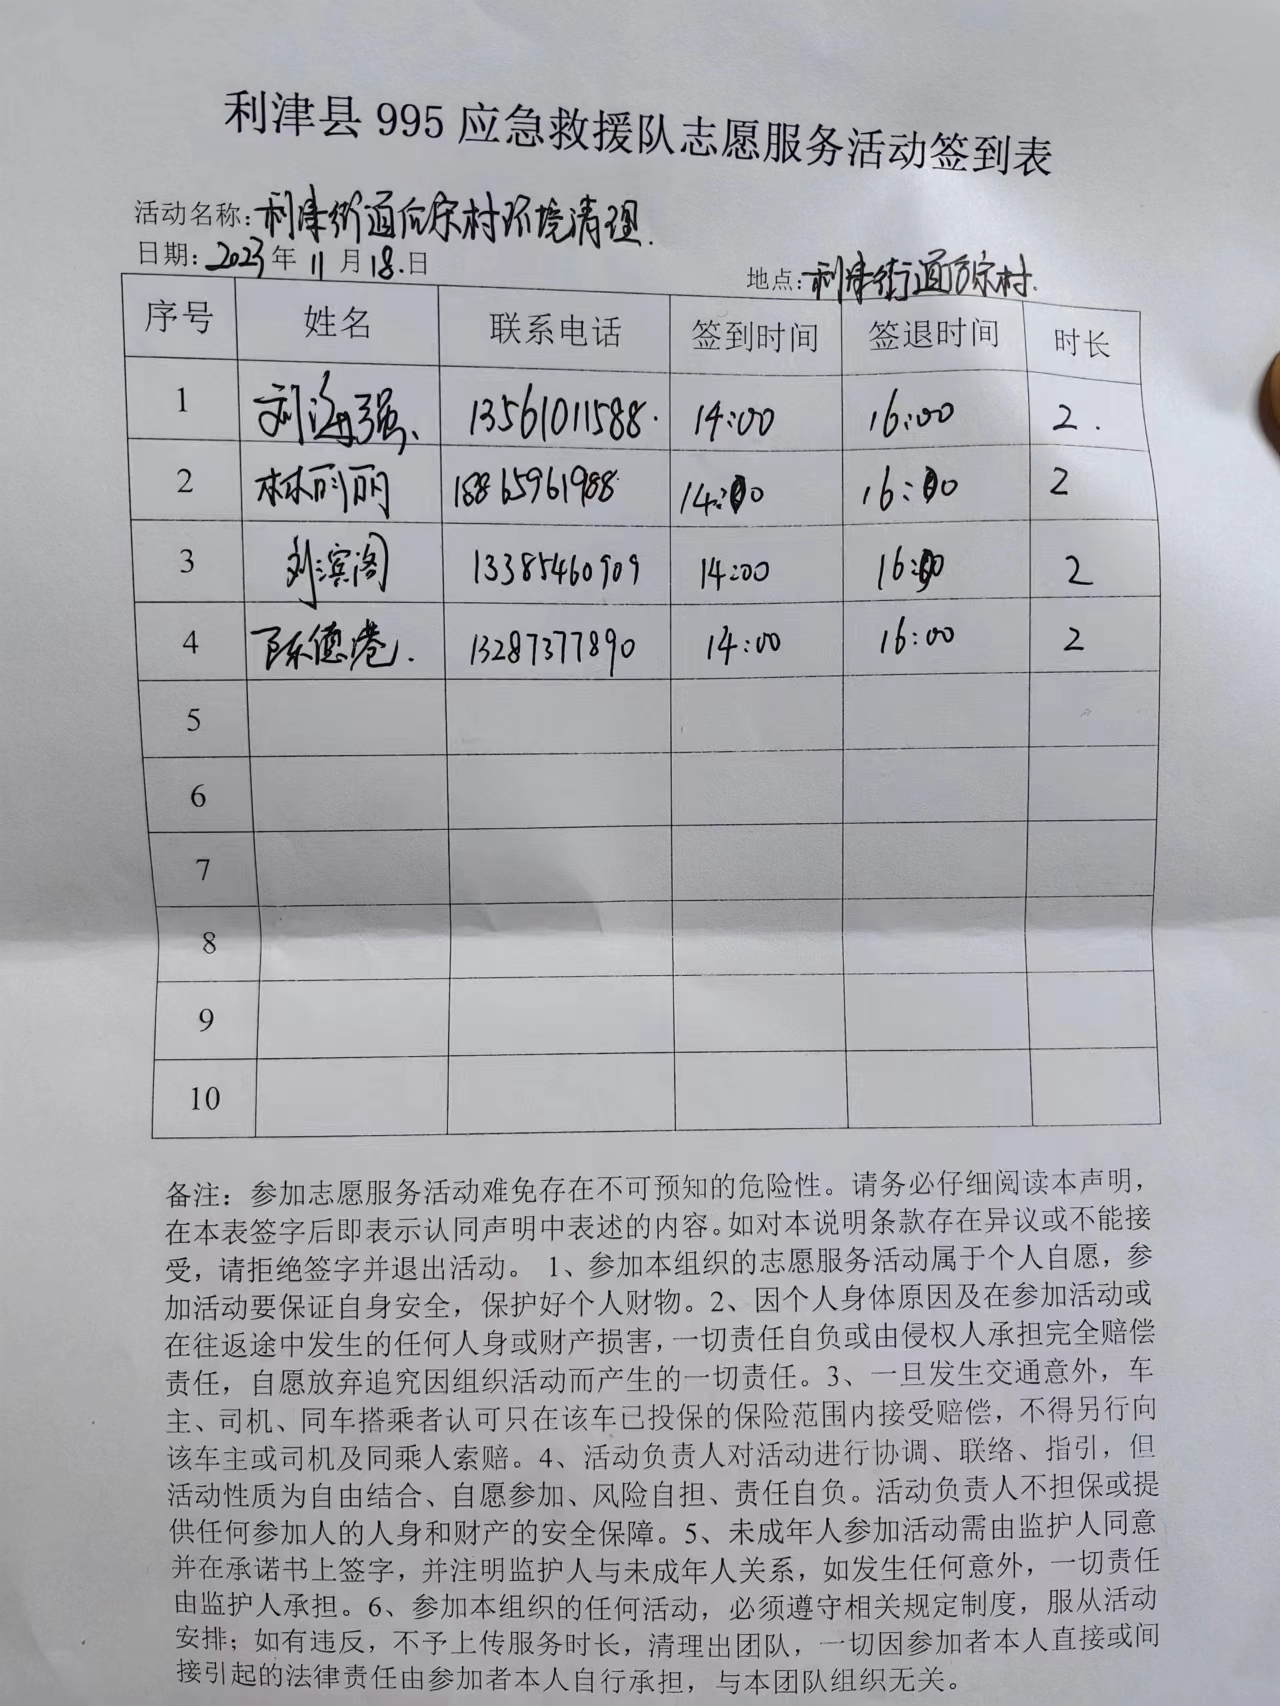 利津县995应急救援队志愿服务活动签到表
活动名称:利津街道后宋村环境清理.
日期:2023年11月18.日
地点:利津街道后宋村.
序号 姓名 联系电话 签到时间 签退时间 时长
1 刘海强、 13561011588. 14:00 16:00 2.
2 林丽丽 18865961988 14:00 16:00 2
3 刘滨阁 13385460909 14:00 16:00 2
4 陈德港. 13287377890 14:00 16:00 2
5
6
7
8
9
10
备注：参加志愿服务活动难免存在不可预知的危险性。请务必仔细阅读本声明，
在本表签字后即表示认同声明中表述的内容。如对本说明条款存在异议或不能接
受，请拒绝签字并退出活动。 1、参加本组织的志愿服务活动属于个人自愿，参
加活动要保证自身安全，保护好个人财物。2、因个人身体原因及在参加活动或
在往返途中发生的任何人身或财产损害，一切责任自负或由侵权人承担完全赔偿
责任，自愿放弃追究因组织活动而产生的一切责任。3、一旦发生交通意外，车
主、司机、同车搭乘者认可只在该车已投保的保险范围内接受赔偿，不得另行向
该车主或司机及同乘人索赔。4、活动负责人对活动进行协调、联络、指引，但
活动性质为自由结合、自愿参加、风险自担、责任自负。活动负责人不担保或提
供任何参加人的人身和财产的安全保障。5、未成年人参加活动需由监护人同意
并在承诺书上签字，并注明监护人与未成年人关系，如发生任何意外，一切责任
由监护人承担。6、参加本组织的任何活动，必须遵守相关规定制度，服从活动
安排；如有违反，不予上传服务时长，清理出团队，一切因参加者本人直接或间
接引起的法律责任由参加者本人自行承担，与本团队组织无关。